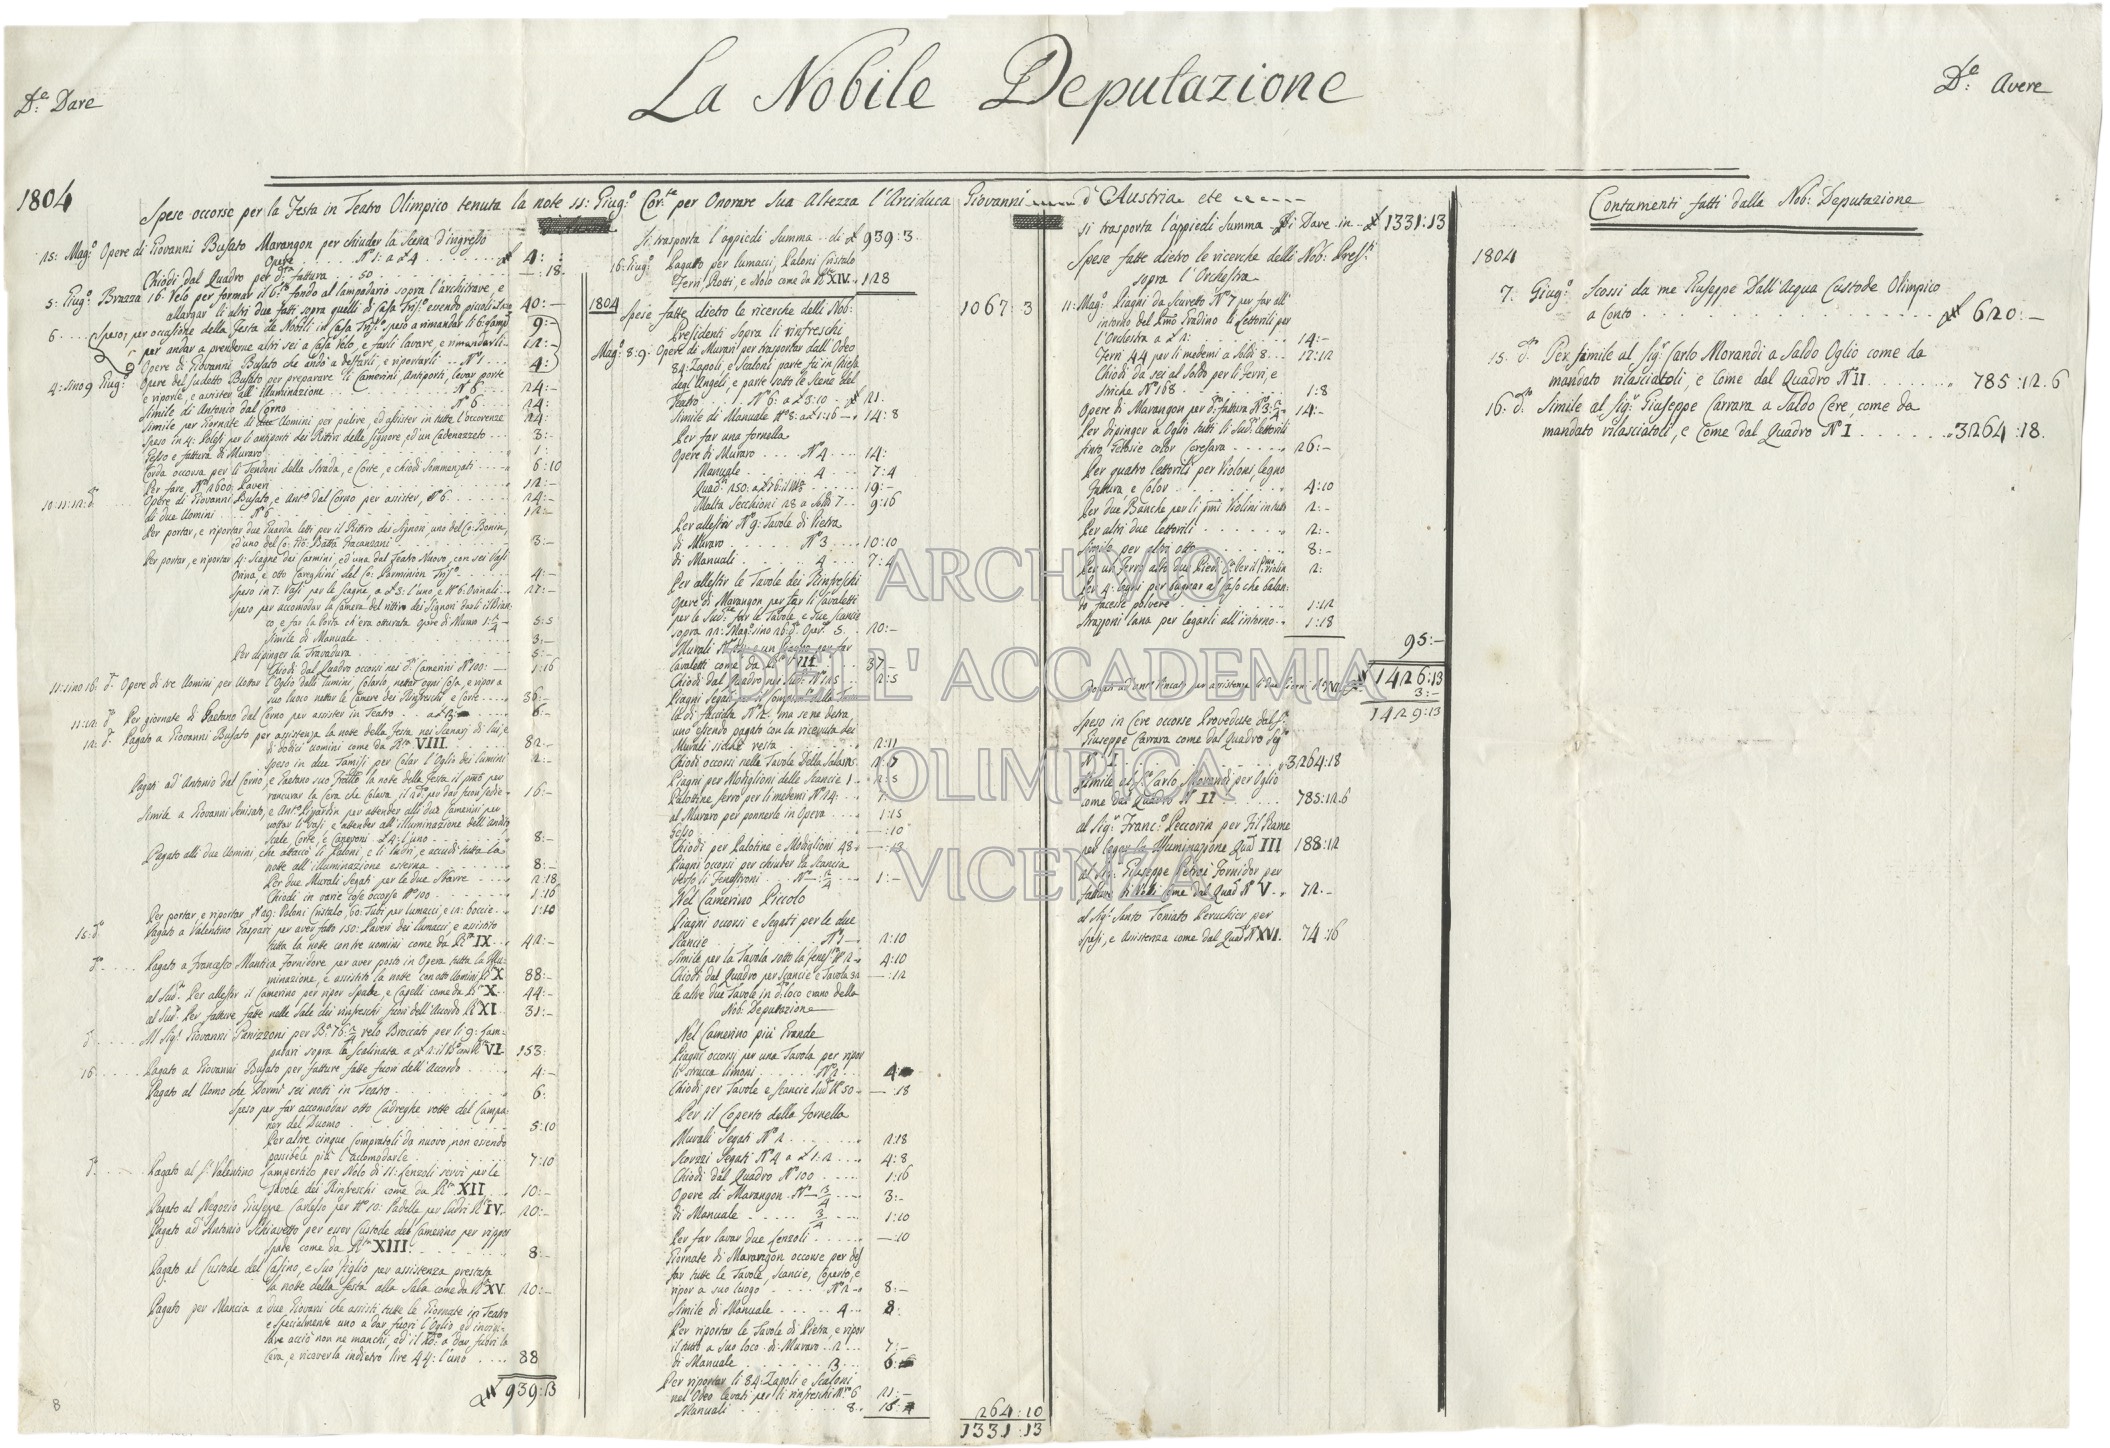 D.e Dare
La Nobile Deputazione
D.e Avere
1804
Spese occorse per la Festa in Teatro Olimpico tenuta la note 11: Giug.o Cor.te per Onorare Sua Altezza l'Arciduca Giovanni d'Austria ete
15: Mag.o Opere di Giovanni Busato Marangon per chiuder la Scena d'ingresso
Opere N.o 1: a £ 4 £ 4:-
Chiodi dal Quadro per d.ta fattura .. 50 -:18.
5: Giug.o Brazza 16: Velo per formar il fondo al lampadario sopra l'architrave, e
allargar li altri due fatti sopra quelli di Casa essendo piccoli 40:-
6 Speso, per occasione della Festa de Nobili in Casa speso a rimandar li 6: 9:-
per andar a prenderne altri sei a Casa Velo, e farli lavare, e rimandarli 12:-
Opere di Giovanni Busato che andò a desfarli, e riportarli .. N.o 1 4:
4: sino 9 Giug.o Opere del sudetto Busato per preparare li Camerini, Antiporti, levar porte
e riporle, e assister all'illuminazione N.o 6 24:-
Simile di Antonio dal Corno N.o 6 24:
Simile per Giornate di due Uomini per pulire, ed assister in tutte l'occorenze 24:
Speso in 4: Polesi per li antiporti dei Ritiro delle Signore, ed un Cadenazzeto 3:-
Gesso e fattura di Muraro 1:
Corda occorsa per li Tendoni della Strada, e Corte, e chiodi Sommenzati 6:10
Per fare N.o 2600: Paveri 12:-
10:11:12: d.o Opere di Giovanni Busato, e Ant.o dal Corno per assister, N.o 6 24:-
di due Uomini N.o 6 12:-
Per portar, e riportar due Guarda letti per il Ritiro dei Signori uno del Co: Bonin,
ed uno del Co: Gio: Batta Fracanzani 3:-
Per portar, e riportar 4: Scagne dai Carmini ed una dal Teatro Nuovo, con sei Vasi
Orina, e otto Careghini del Co: Parminion 4:-
Speso in 7: Vasi per le Scagne, a £ 3: l'uno, e N.o 6: Orinali 27:-
Speso per accomodar la Camera del ritiro dei Signori darli il Bian-
co, e far la Porta ch'era otturata opere di Muraro 5:5
Simile di Manuale 3:-
Per dipinger la Travadura 3:-
Chiodi dal Quadro occorsi nei d.ti Camerini N.o 100: 1:16
11: sino 16: d.o Opere di tre Uomini per Vottar l'Oglio dalli Lumini, Colarlo, nettar ogni Cosa, e ripor a
suo luoco nettar le Camere dei Rinfreschi e Corte 36:-
11:12: d.o Per giornate di Gaetano dal Corno per assister in Teatro .. a £ 3 6:-
12: d.o Pagato a Giovanni Busato per assistenza la notte della Festa nei Scenarj di Lui, e
di dodici uomini come da R.ta VIII 82:-
Speso in due Tamisi per Colar l'Oglio dei lumini 2:-
Pagati ad Antonio dal Corno, e Gaetano suo Fratello la note della Festa il p.mo per
rancurar la Cera che colava il 2.do per dar fuori sedie 16:-
Simile a Giovanni Senisato, e Ant.o Rigardin per attender alli due Camerini per
vottar li Vasi e attender all'illuminazione dell'andito
Scale, Corte, e Caneroni £ 4: l'uno 8:-
Pagato alli due Uomini, che attacò li Paloni, e li ludri, e accudì tutta la
notte all'illuminazione esterna 8:-
Per due Murali Segati per le due Narre 2:18
Chiodi in varie Cose occorse N.o 100 1:16
Per portar, e riportar N.o 29: Paloni Cristalo, 60: Tubi per lumacci, e 12: boccie 1:10
15: d.o Pagato a Valentino Gaspari per aver fatto 150: Paveri dei lumacci, e assistito
tutta la notte con tre uomini come da R.ta IX 42:-
d.o Pagato a Francesco Mantica Fornidore per aver posto in Opera tutta la Illu-
minazione, e assistito la notte con otto Uomini R.ta X 88:-
al Sud.o Per allestir il Camerino per ripor Spade, e Capelli come da R.ta X 44:-
al Sud.o Per fatture fatte nelle Sale dei rinfreschi fuori dell'Accordo R.ta XI 31:-
d.o Al Sig.r Giovanni Panizzoni per B.a 76: 1/2 velo Broccato per li 9: Lam-
padari sopra la Scalinata a £ 2: il B.o come R.ta VI 153:
16 Pagato a Giovanni Busato per fatture fatte fuori dell'Acordo 4:-
Pagato al Uomo che Dormì sei notti in Teatro 6:
Speso per far accomodar otto Cadreghe rotte del Campa-
ner del Duomo 5:10
Per altre cinque Compratoli da nuovo, non essendo
possibile più l'accomodarle 7:10
d.o Pagato al S.r Valentino Lampertico per Nolo di 11: Lenzoli servì per le
Tavole dei Rinfreschi come da R.ta XII 10:-
Pagato al Negozio Giuseppe Cardesso per N.o 10: Padelle per ludri R.ta IV 20:-
Pagato ad Antonio Schiavetto per esser Custode del Camerino per ripor
Spade come da R.ta XIII 8:-
Pagato al Custode del Casino, e Suo figlio per assistenza prestata
la notte della festa alla Sala come da R.ta XV 20:-
Pagato per Mancia a due Giovani che assistì tutte le Giornate in Teatro
e specialmente uno a dar fuori l'Oglio ed invigi-
lare acciò non ne manchi, ed il 2.do a dar fuori la
Cera, e riceverla indietro lire 44: l'uno 88
£ 939:13
8
Si trasporta l'appiedi Summa di £ 939:3
16: Giug.o Pagatto per lumacci, Paloni Cristalo
Ferri, Rotti, e Nolo come da R.ta XIV 128
1067:3
1804 Spese fatte dietro le ricerche delli Nob:
Presidenti sopra li rinfreschi
Mag.o 8:9: Opere di Murari per trasportar dall'Odeo
84: Zapoli, e Scaloni parte fù in Chiesa
degl'Angeli, e parte sotto le Scene del
Teatro N.o 6: a £ 3:10 £ 21.
Simile di Manuale N.o 8: a £ 1:16 14:8
Per far una fornella
Opere di Muraro N.o 4 14:
Manuale 4 7:4
Quad.i 250: a £ 76: il M 19:-
Malta Secchioni 28 a soldi 7 9:16
Per allestir N.o 9: Tavole di Pietra
di Muraro N.o 3 10:10
di Manuali 4 7:4
Per allestir le Tavole dei Rinfreschi
Opere di Marangon per far li Cavaletti
per le Sud.te far le Tavole e due Scancie
sopra 22: Mag.o sino 26: d.o Oper.e 5 20:-
Murali e un Piagno per far
Cavaletti come da R.ta VII 37:-
Chiodi dal Quadro nei sud.i N.o 125 2:5
Piagni Segati
di Facciata N.o 12: ma se ne detra
uno essendo pagato con la ricevuta dei
Murali sichè resta 12:11
Chiodi occorsi nelle Tavole Della Sala
Piagni per Modiglioni delle Scancie 1 2:5
Palottine ferro per li medemi N.o 14: 7:
al Muraro per ponnerle in Opera 1:15
Gesso -:10
Chiodi per Palotine e Modiglioni 48 -:18
Piagni occorsi per chiuder la Scancia
verso li Fenestroni N.o 1/4 1:-
Nel Camerino Piccolo
Piagni occorsi e Segati per le due
Scancie N.o 1 2:10
Simile per la Tavola sotto la fenes.a N.o 2 4:10
Chiodi dal Quadro per Scancie e Tavola 32 -:12
le altre due Tavole in d.o loco erano della
Nob: Deputazione
Nel Camerino più Grande
Piagni occorsi per una Tavola per ripor
li strucca limoni N.o 2 4
Chiodi per Tavole e Scancie sud.e N.o 50 -:18
Per il Coperto della Fornella
Murali Segati N.o 2 2:18
Scorzzi Segati N.o 4 a £ 1:2 4:8
Chiodi dal Quadro N.o 100 1:16
Opere di Marangon N.o 3/4 3:-
di Manuale 3/4 1:10
Per far lavar due Lenzoli -:10
Giornate di Marangon occorse per des
far tutte le Tavole, Scancie, Coperto, e
ripor a suo luogo N.o 2 8:-
Simile di Manuale 4 8:
Per riportar le Tavole di Pietra, e ripor
il tutto a Suo loco di Muraro .. 2 7:-
di Manuale 3 6:
Per riportar li 84: Zapoli e Scaloni
nel Odeo levati per li rinfreschi N.o 6 21:-
Manuali 8. 15:
264:10
1331:13
Si trasporta l'appiedi Summa Di Dare in £ 1331:13
Spese fatte dietro le ricerche delli Nob: Pres.ti
sopra l'Orchestra
11: Mag.o Piagni da Scuretto N.o 7 per far all'
intorno del P.mo Gradino li Lettorili per
l'Orchestra a £ 2: 14:-
Ferri 44 per li medemi a Soldi 8 17:12
Chiodi da sei al Soldo per li Ferri, e
Striche N.o 168 1:8
Opere di Marangon per d.ta fattura N.o 3:1/2 14:-
Per dipinger a Oglio tutti li Sud.i lettorili
finto Gelosie color Ceresara 26:-
Per quatro lettorili per Violoni, legno
fattura e Color 4:10
Per due Banche per li p.mi Violini in tutto 2:-
Per altri due lettorili 2:-
Simile per altri otto 8:-
Per un Ferro alto due Piedi C.o per il P.mo Violin 2:
Per 4: legni per bagnar al Caso che Calan-
do facesse polvere 1:12
Strazzoni lana per legarli all'intorno 1:18
95:-
£ 1426:13
Donati ad Ant.o Vincato per assistenza di due Giorni 3:-
1429:13
Speso in Cere occorse Provedute dal S.r
Giuseppe Carrara come dal Quadro Seg.to
N.o I 3264:18
Simile al S.r Carlo Morandi per Oglio
come dal Quadro N.o II 785:12.6
al Sig.r Franc.o Peccorin per Fil Rame
per legar la Illuminazione Quad.o III 188:12
al Sig.r Giuseppe Petrin Fornidor per
fatture di Nolli Come dal Quad.o N.o V 72.-
al Sig.r Santo Toniato Peruchier per
Spesi, e Assistenza come dal Quad.o N.o XVI. 74:16
Contamenti fatti dalla Nob: Deputazione
1804
7. Giug.o Scossi da me Giuseppe Dall'Acqua Custode Olimpico
a Conto £ 620:-
15. d.o Per simile al Sig.r Carlo Morandi a Saldo Oglio come da
mandato rilasciatoli, e Come dal Quadro N.o II 785:12.6
16. d.o Simile al Sig.r Giuseppe Carrara a Saldo Cere, come da
mandato rilasciatoli, e Come dal Quadro N.o I 3264:18.
ARCHIVIO
DELL'ACCADEMIA
OLIMPICA
VICENZA